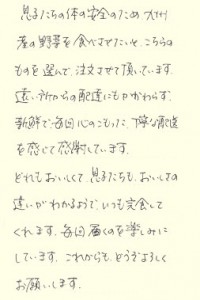 息子たちの体の安全のため、九州
産の野菜を食べさせたいと、こちらの
ものを選んで、注文させて頂いています。
遠い所からの配達にもかかわらず、
新鮮で、毎回心のこもった、丁寧な配達
を感じて感謝しています。
どれもおいしくて、息子たちも、おいしさの
違いがわかるようで、いつも完食して
くれます。毎回届くのを楽しみに
しています。これからも、どうぞよろしく
お願いします。